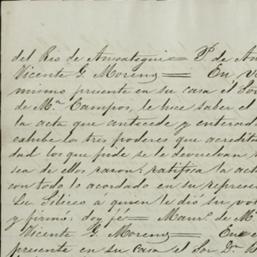 del Rio de Anzategui = P. de An
Vicente G. Moreno = En V
mismo presente en su casa el Sor
de Mª Campos, le hice saber el
la acta que antecede y enterado
exhibe los tres poderes que acredita
dad los que pide se le devuelvan
sea de ellos razon: ratifica la acta
con todo lo acordado en su represen
Lic á quien le dió su voto
y firmó: doy fe = Manl. de M
Vicente G. Moreno = En
presente en su casa el Sor Dn